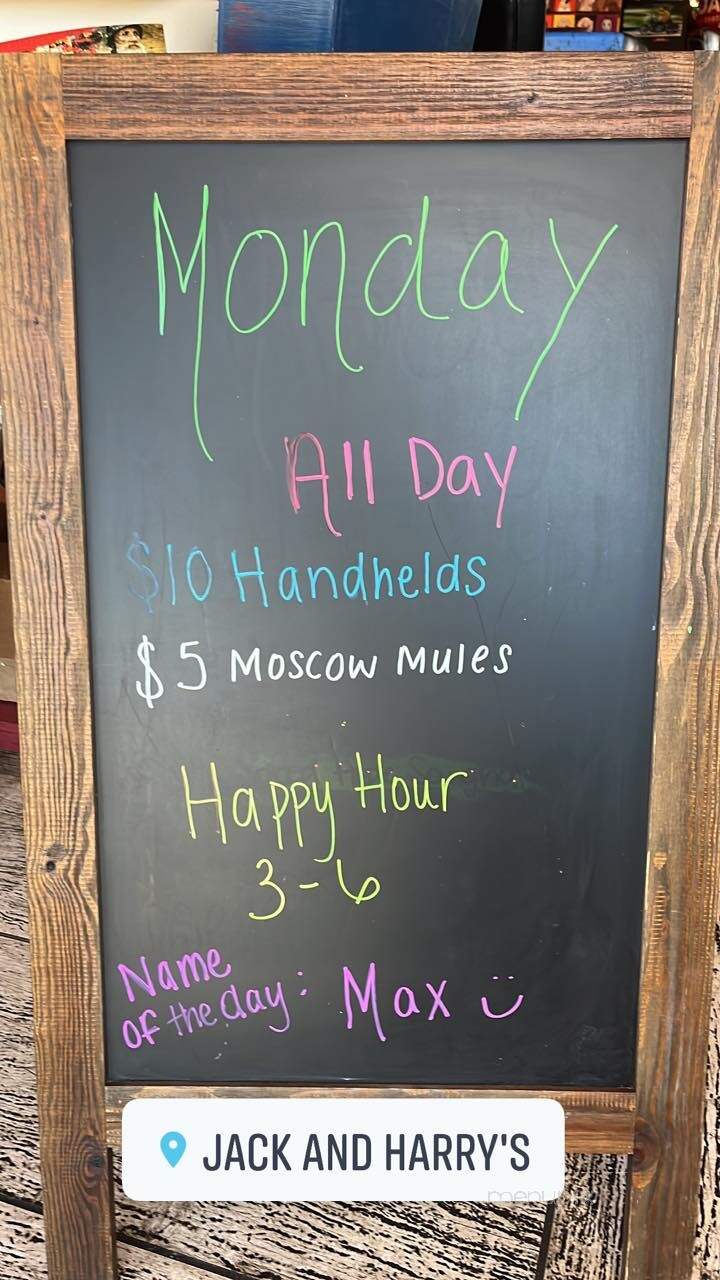 Monday
All Day
$10 Handhelds
$5 Moscow Mules
Happy Hour
3-6
Name
of the day: Max
JACK AND HARRY'S